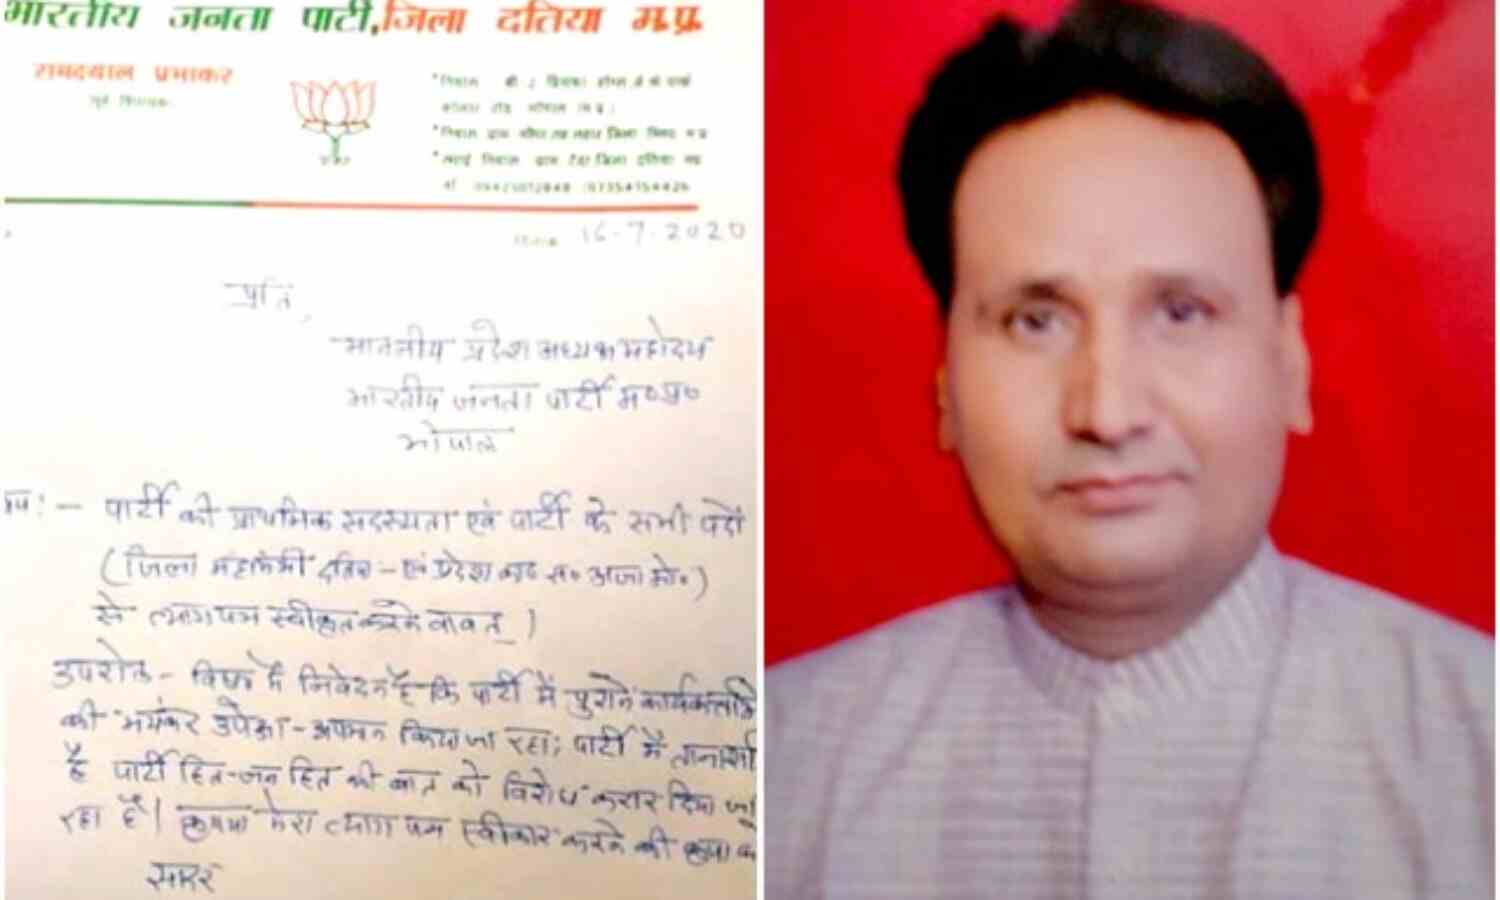 भारतीय जनता पार्टी,जिला दतिया म.प्र.
रामदयाल प्रभाकर
पूर्व विधायक
निवास बी 2
कोलार रोड भोपाल (म.प्र.)
निवास ग्राम जिला म.प्र.
निवास ग्राम जिला दतिया म.प्र.
दिनांक 16-7-2020
प्रति,
माननीय प्रदेश अध्यक्ष महोदय
भारतीय जनता पार्टी म०प्र०
भोपाल
:- पार्टी की प्राथमिक सदस्यता एवं पार्टी के सभी पदों
(जिला महामंत्री दतिया - एवं प्रदेश का० स० अजा मो०)
से त्यागपत्र स्वीकृत करने बावत्।
उपरोक्त - विषय में निवेदन है कि पार्टी में पुराने
की भयंकर उपेक्षा - अपमान किया जा रहा; पार्टी में
है पार्टी हित-जन हित की बात को विरोध करार दिया
रहा है। कृपया मेरा त्याग पत्र स्वीकार करने की कृपा
सादर